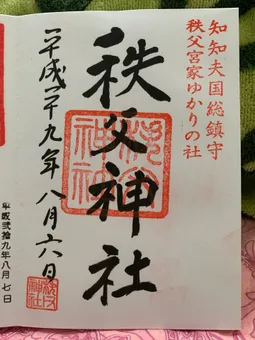 知知夫国総鎮守
秩父宮家ゆかりの社
秩父神社
秩父神社
平成二十九年八月六日
秩父神社
平成弐拾九年八月七日